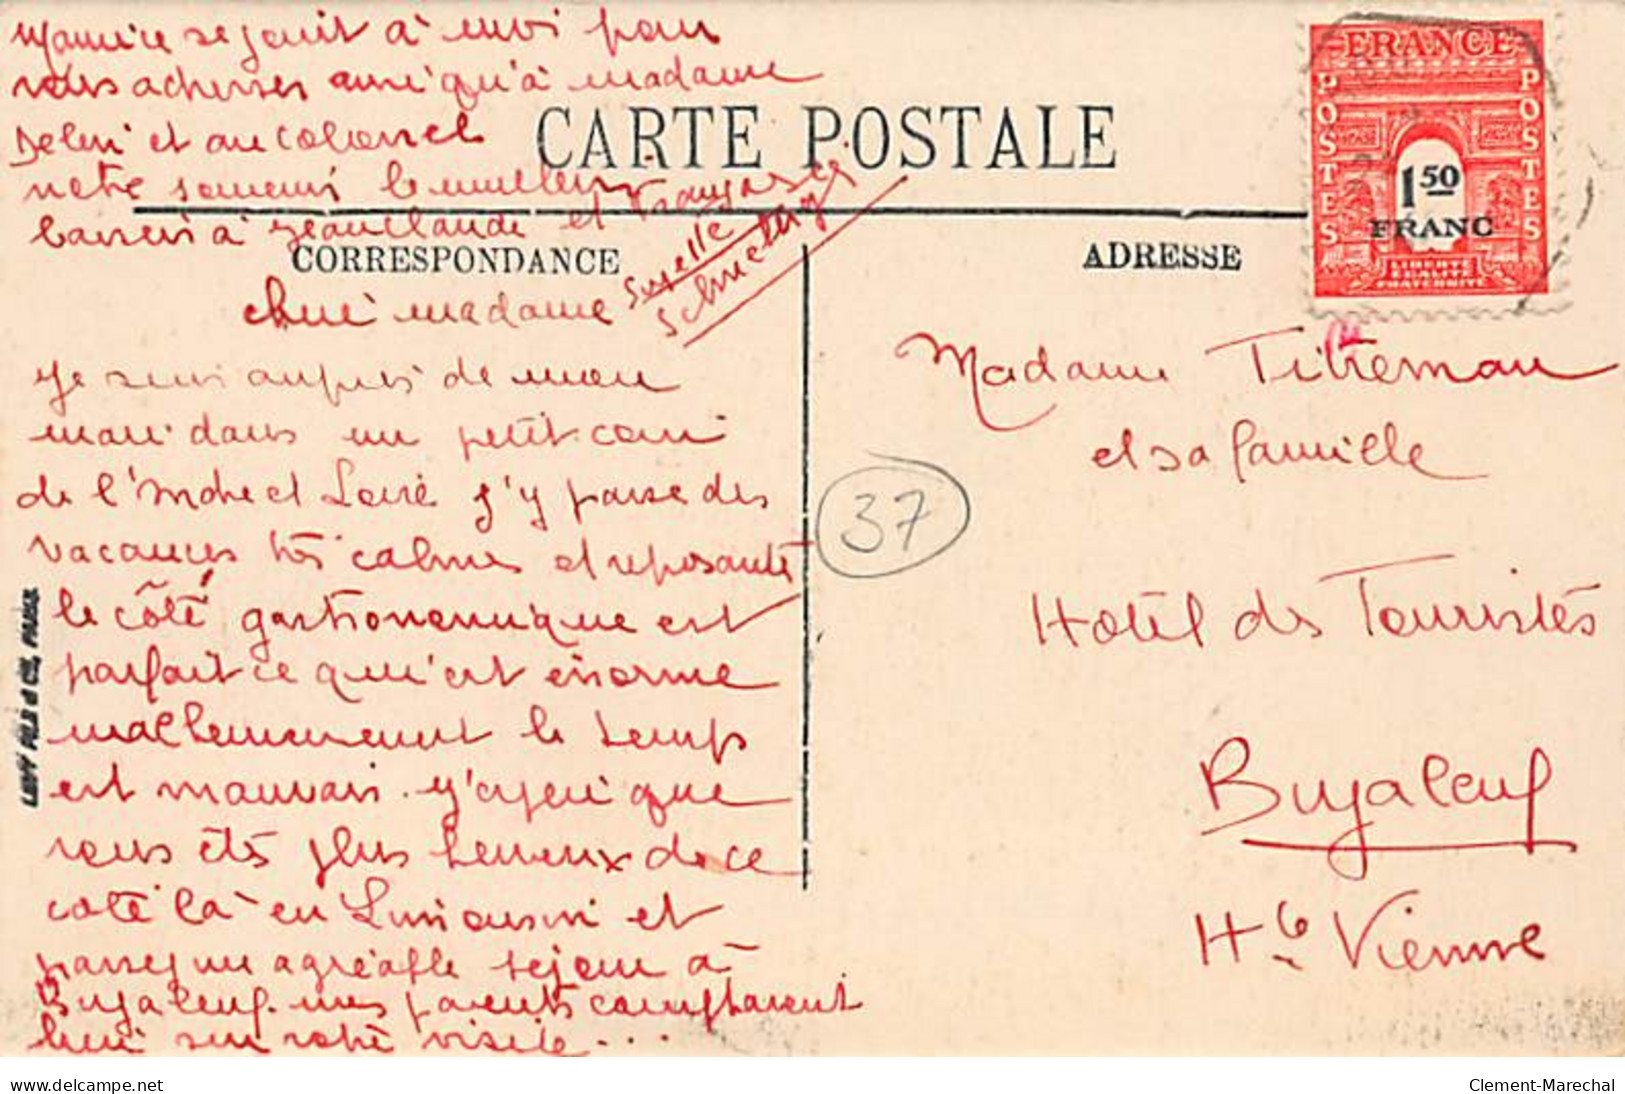 CARTE POSTALE
CORRESPONDANCE
ADRESSE
FRANCE
POSTES
POSTES
1 50
FRANC
LIBERTÉ
ÉGALITÉ
FRATERNITÉ
chère madame
je suis auprès de mon
mari dans un petit coin
de l'Indre et Loire j'y passe des
vacances très calmes et reposante
le côté gastronomique est
parfait ce qu'est énorme
malheureusement le temps
est mauvais. j'espère que
vous êtes plus heureux de ce
côté là en Limousin et
passez une agréable séjour à
Bujaleuf. mes parents comptaient
bien sur votre visite...
Maurice se joint à moi pour
vous adresser ainsi qu'à madame
et au colonel
notre souvenir le meilleur
baisers à Jeanclaude et
Madame Titreman
et sa famille
37
Hôtel des Touristes
Bujaleuf
Hte Vienne
LEVY FILS et Cie, PARIS
www.delcampe.net
Clement-Marechal